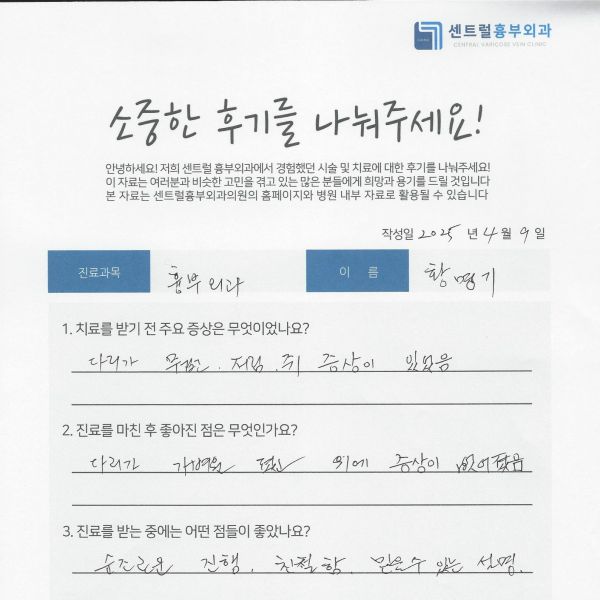 센트럴흉부외과
CENTRAL VARICOSE VEIN CLINIC
소중한 후기를 나눠주세요!
안녕하세요! 저희 센트럴 흉부외과에서 경험했던 시술 및 치료에 대한 후기를 나눠주세요!
이 자료는 여러분과 비슷한 고민을 겪고 있는 많은 분들에게 희망과 용기를 드릴 것입니다
본 자료는 센트럴흉부외과의원의 홈페이지와 병원 내부 자료로 활용될 수 있습니다
작성일 2025 년 4 월 9 일
진료과목 흉부외과 이 름 황명기
1. 치료를 받기 전 주요 증상은 무엇이었나요?
다리가 무겁고. 저림. 쥐 증상이 있었음
2. 진료를 마친 후 좋아진 점은 무엇인가요?
다리가 가벼워 증상이 없어졌음
3. 진료를 받는 중에는 어떤 점들이 좋았나요?
순조로운 진행. 친절함. 믿을수 있는 설명.